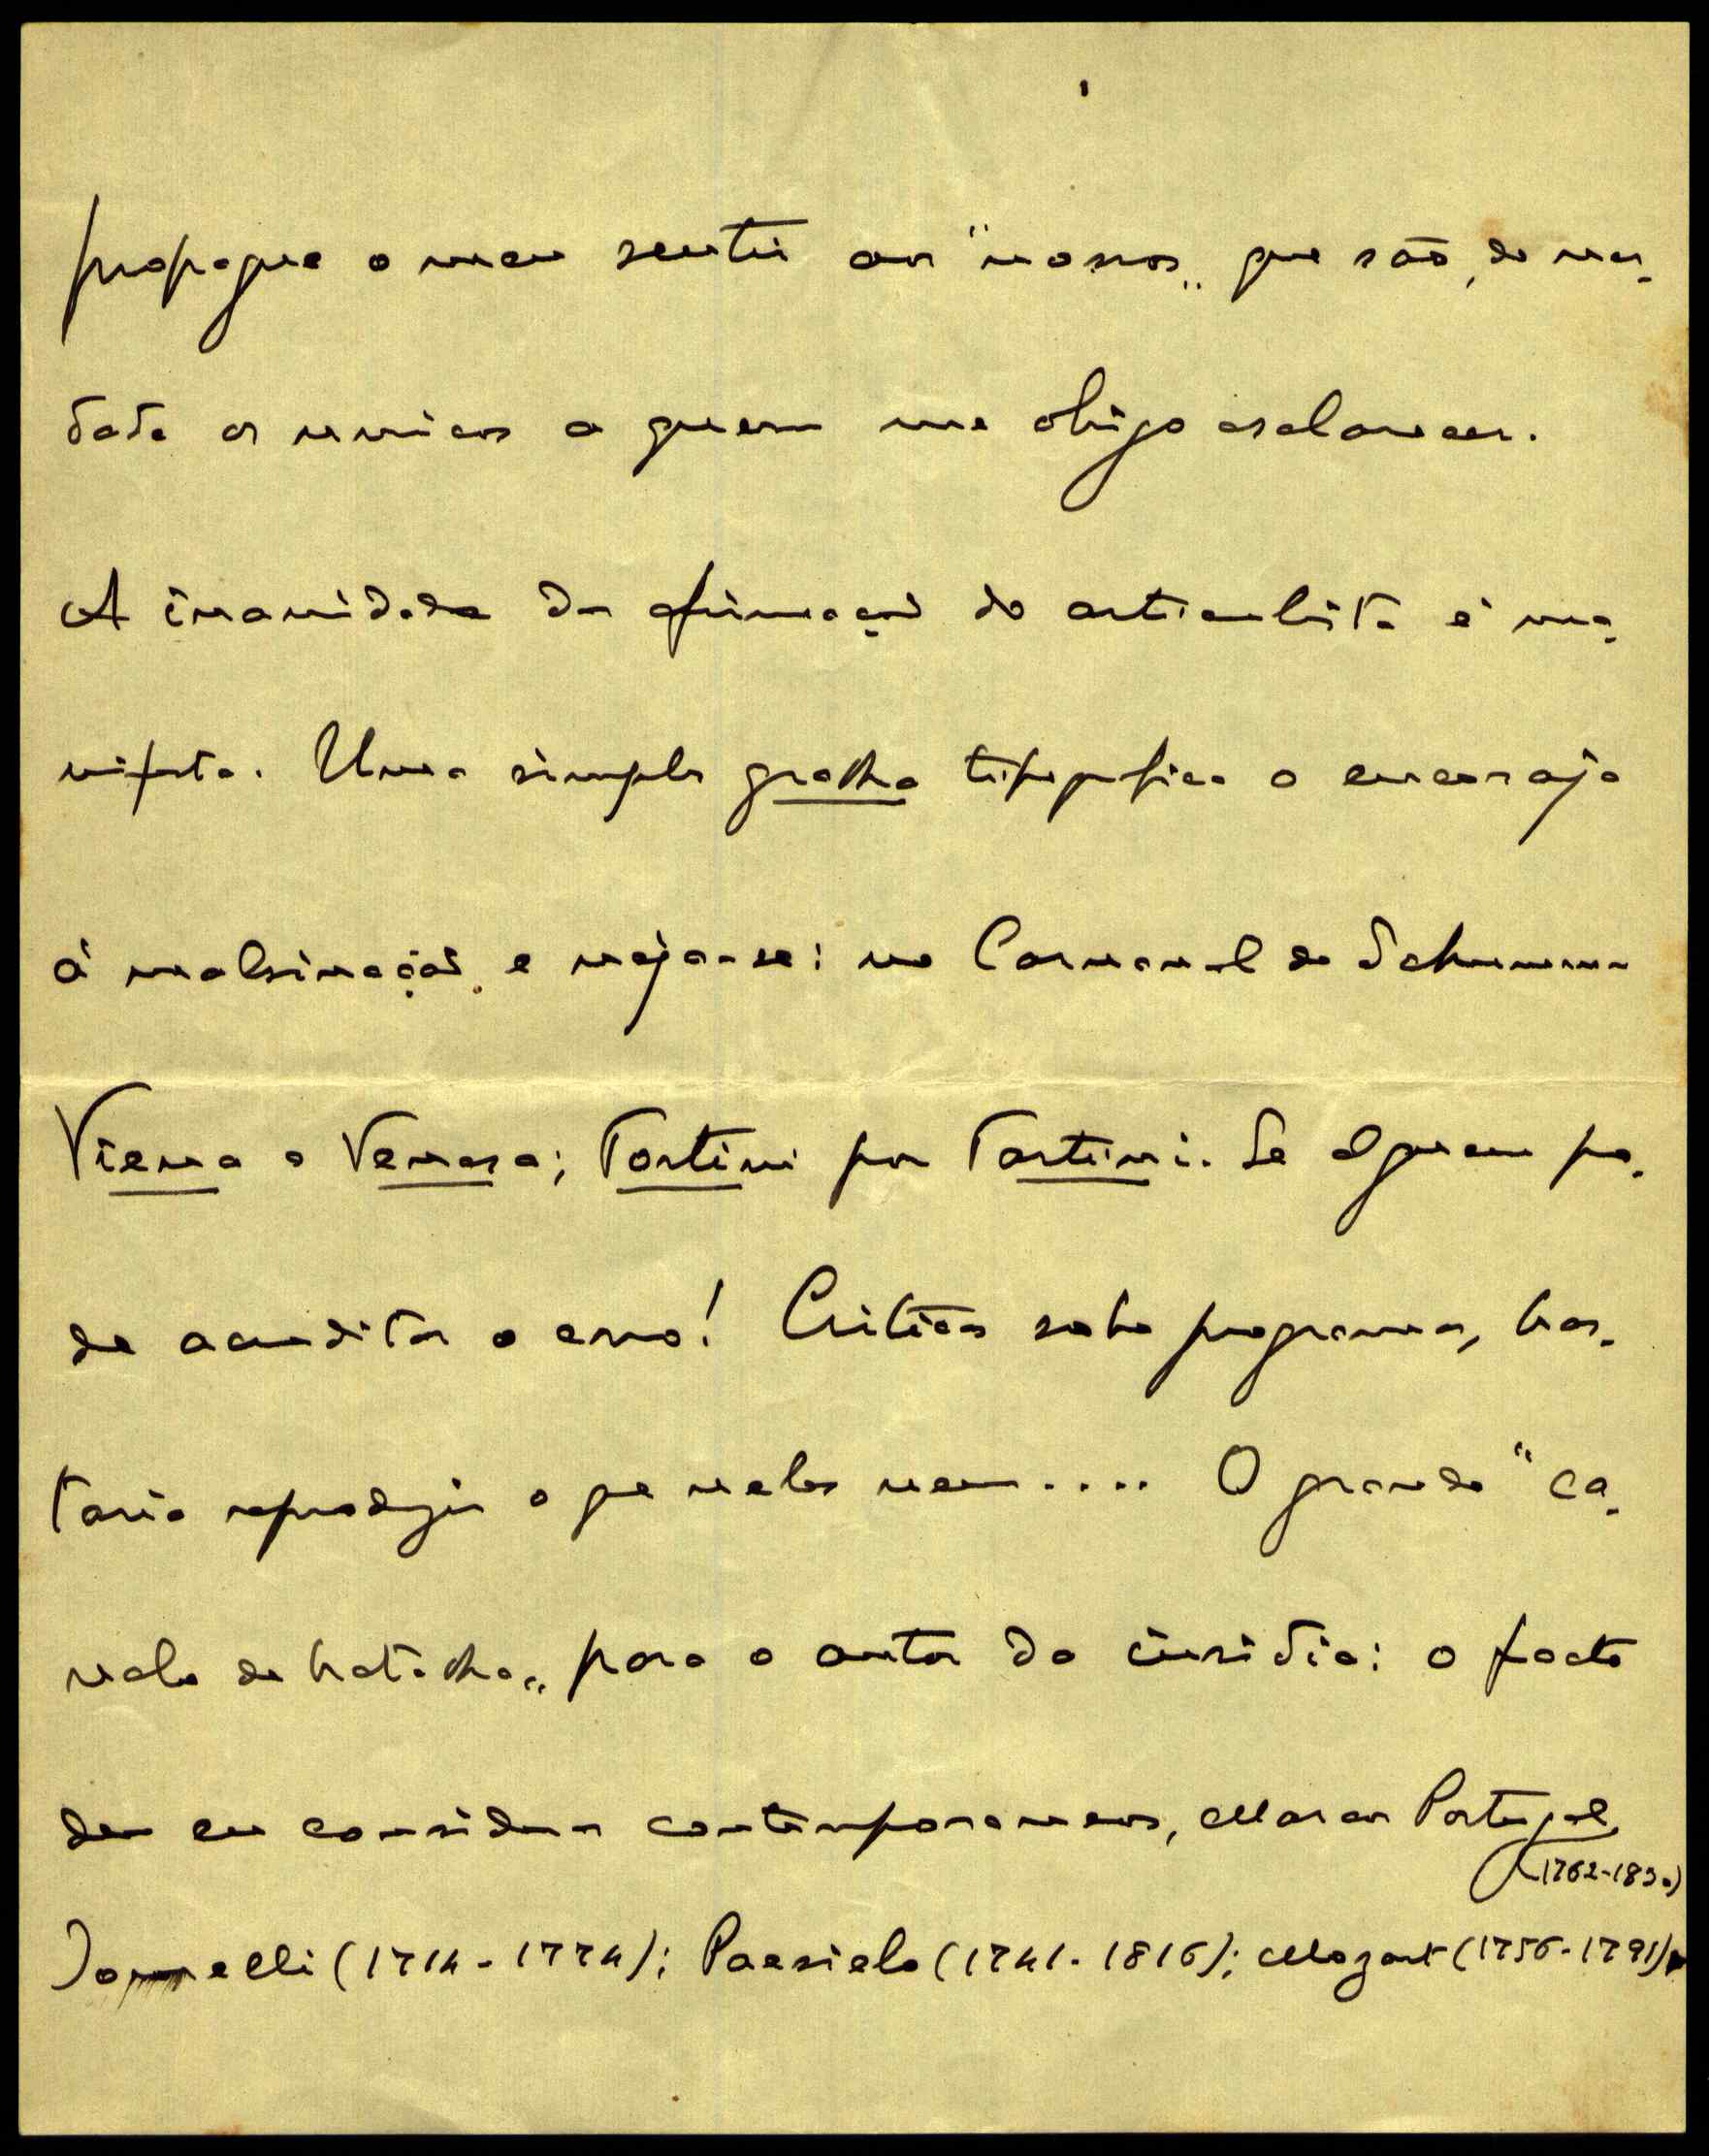 propague o meu sentir aos "nossos" que são, de ver-
dade os unicos a quem me obrigo esclarecer.
A inanidade da afirmação do articulista é ma-
nifesta. Uma simples gralha tipografica o encoraja
á malsinação e veja-se: no Carnaval de Schumann
Viena o Venasa; Tortini por Tartini. Se alguem po-
de acreditar o erro! Criticas sobre programas, bas-
taria reproduzir o que neles vem.... O grande "ca-
valo de batalha" para o autor da insidia: o facto
de eu considerar contemporaneos, Marcos Portugal,
(1762-1830)
Jommelli (1714-1774); Paesielo (1741-1816); Mozart (1756-1791)